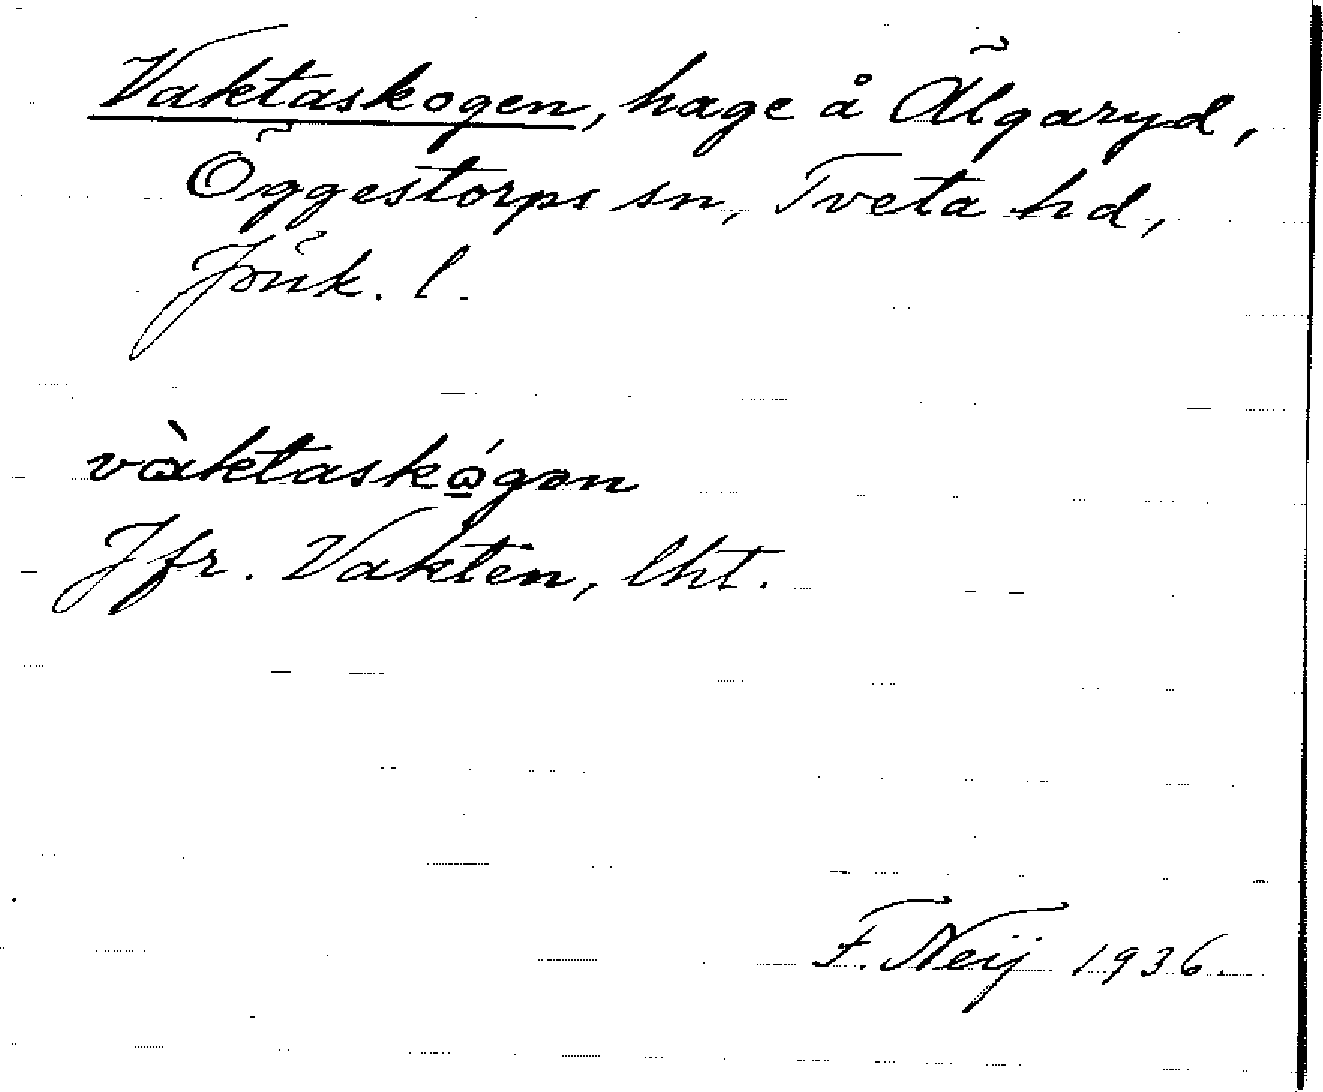 Vaktaskogen, hage å Älgaryd,
Öggestorps sn, Tveta hd,
Jönk. l.
vàktaskǫ́gən
Jfr. Vakten, lht.
F. Neij 1936.